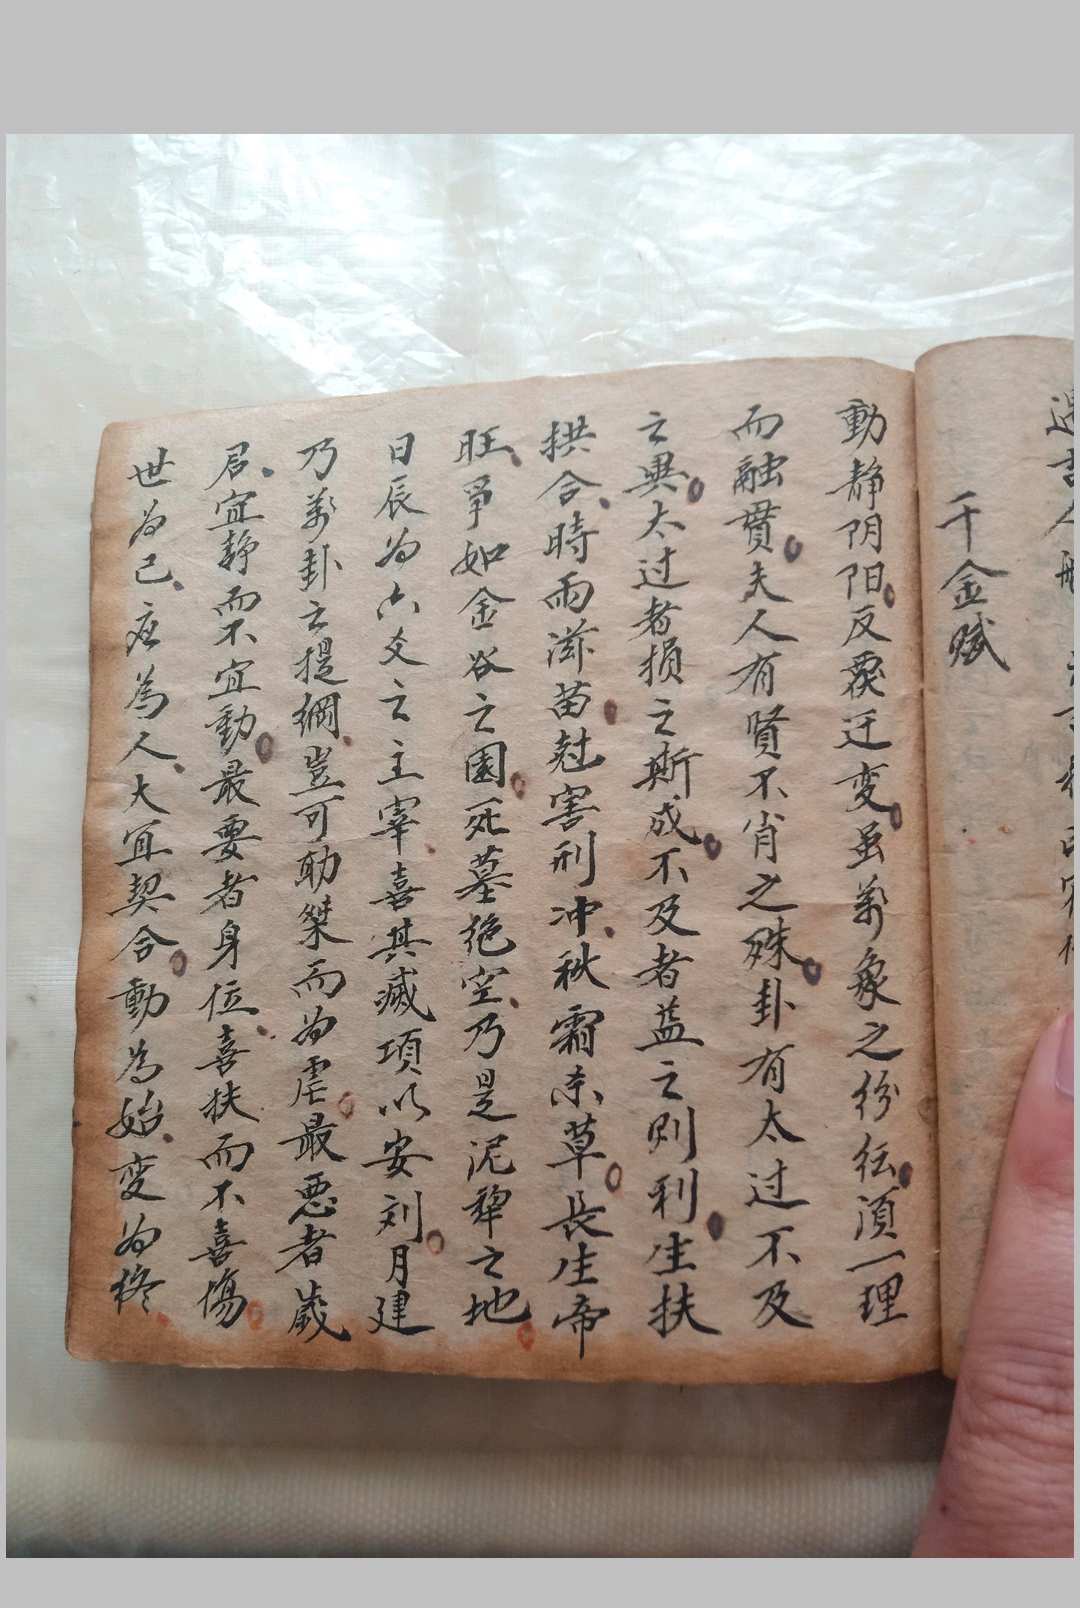 千金賦
動静阴阳反覆迁变虽萬象之纷纭須一理
而融貫夫人有賢不肖之殊卦有太过不及
之異太过者損之斯成不及者益之則利生扶
拱合時雨滋苗尅害刑冲秋霜杀草長生帝
旺爭如金谷之園死墓绝空乃是泥犂之地
日辰为六爻之主宰喜其滅項以安刘月建
乃萬卦之提綱豈可助桀而为虐最惡者歲
君宜静而不宜動最要者身位喜扶而不喜傷
世为己应為人大宜契合動為始变为终